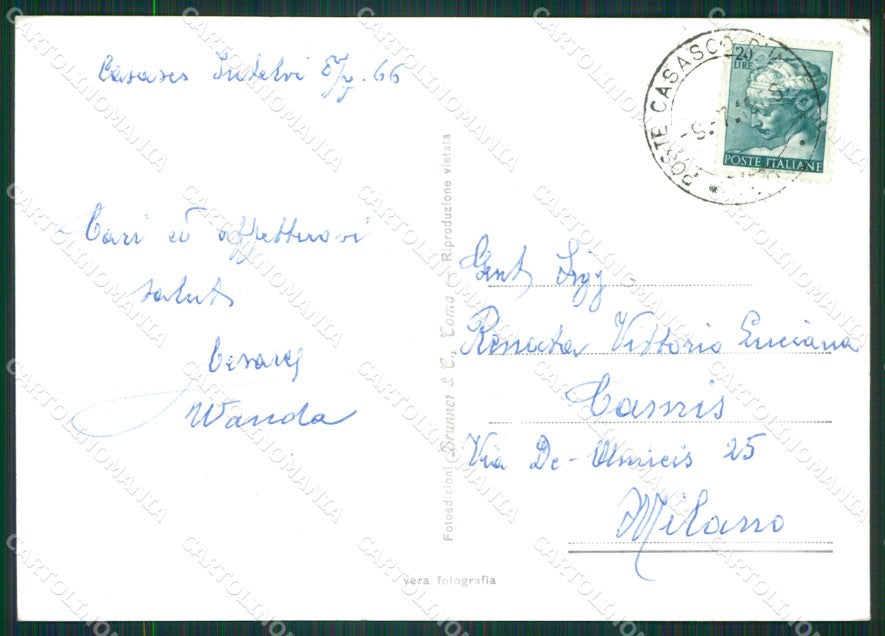 Casasco Intelvi 5/7.66
Cari ed affettuosi
saluti
Cesare
Wanda
Fotoedizioni Brunner & C., Como - Riproduzione vietata
vera fotografia
POSTE CASASCO
20
LIRE
POSTE ITALIANE
Gent Sigg
Renata Vittorio Luciana
Camis
Via De-Amicis 25
Milano
CARTOLINOMANIA